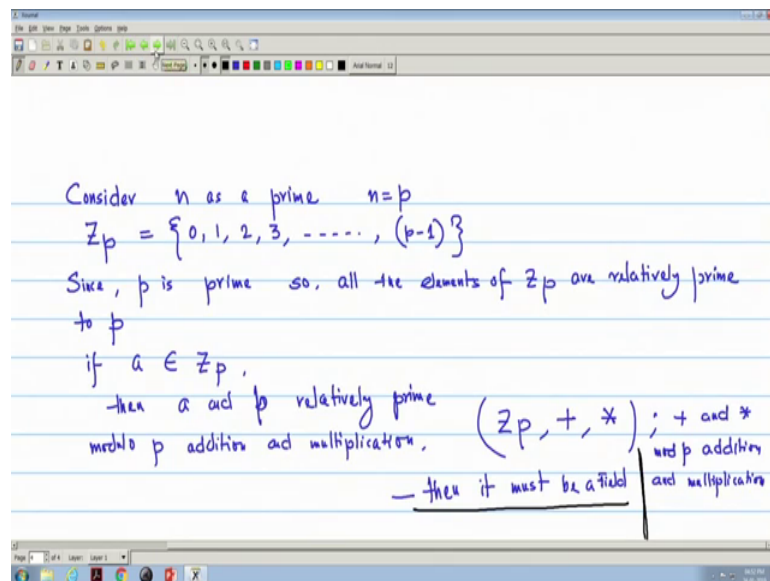 Journal
File Edit View Page Tools Options Help
Next Page
Arial Normal 12
Consider n as a prime n=p
Zp = {0, 1, 2, 3, -----, (p-1)}
Since, p is prime so, all the elements of Zp are relatively prime
to p
if a ∈ Zp,
then a and p relatively prime
modulo p addition and multiplication.
(Zp, +, *) ; + and *
mod p addition
and multiplication
— then it must be a field
Page 4 of 4 Layer: Layer 1